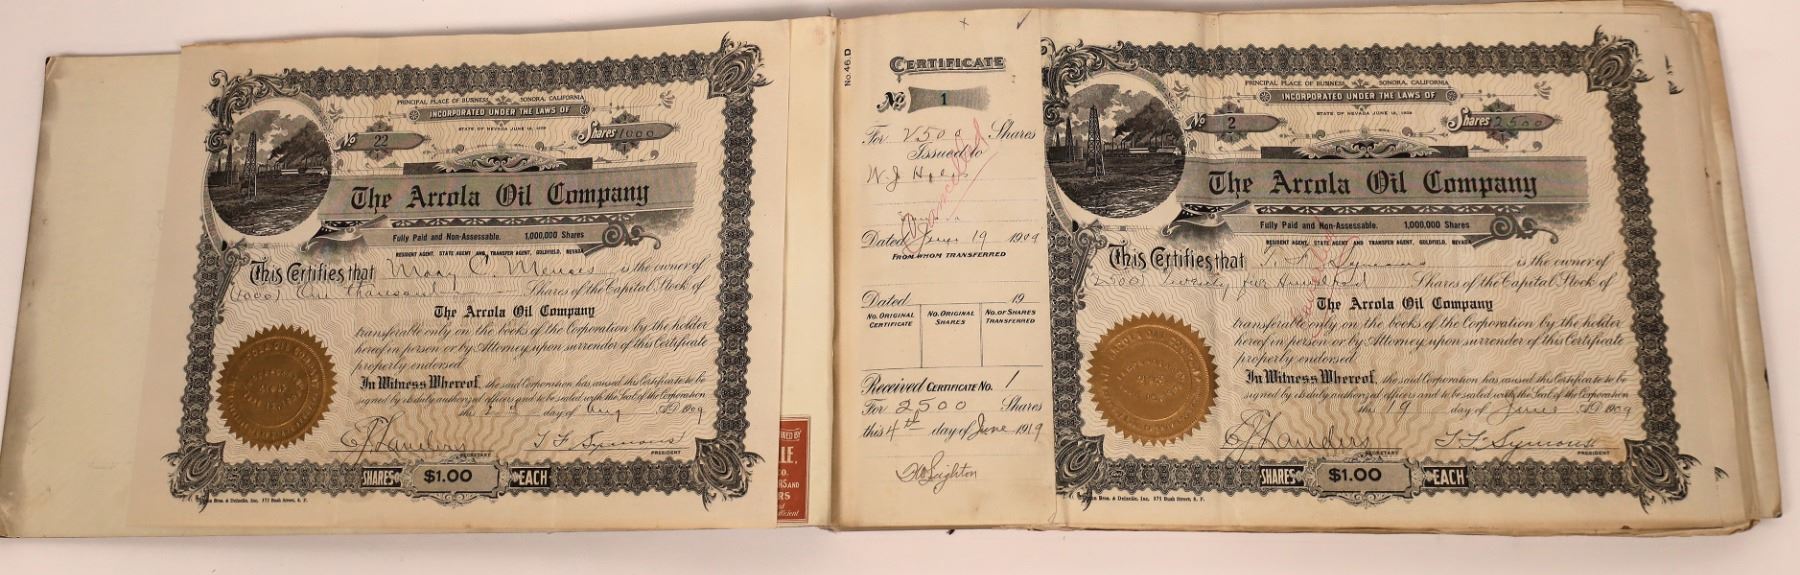 PRINCIPAL PLACE OF BUSINESS SONORA, CALIFORNIA
INCORPORATED UNDER THE LAWS OF
STATE OF NEVADA JUNE 12, 1909
No 22
Shares 1000
The Arcola Oil Company
Fully Paid and Non-Assessable. 1,000,000 Shares
RESIDENT AGENT, STATE AGENT AND TRANSFER AGENT, GOLDFIELD, NEVADA
This Certifies that Mary C. is the owner of
(1000) One Thousand Shares of the Capital Stock of
The Arcola Oil Company
transferable only on the books of the Corporation by the holder
hereof in person or by Attorney upon surrender of this Certificate
properly endorsed.
In Witness Whereof, the said Corporation has caused this Certificate to be
signed by its duly authorized officers and to be sealed with the Seal of the Corporation
this day of Aug A.D. 1909
T. F. Symons
SECRETARY PRESIDENT
SHARES $1.00 EACH
Bros. & Delzelle, Inc. 571 Bush Street, S. F.
No. 46 D
CERTIFICATE
No 1
For 2500 Shares
Issued to
W. J.
Cancelled
Dated June 19 1909
FROM WHOM TRANSFERRED
Dated 19
No. ORIGINAL CERTIFICATE
No. ORIGINAL SHARES
No. OF SHARES TRANSFERRED
Received CERTIFICATE No. 1
For 2500 Shares
this 4th day of June 1919
PRINCIPAL PLACE OF BUSINESS SONORA, CALIFORNIA
INCORPORATED UNDER THE LAWS OF
STATE OF NEVADA JUNE 12, 1909
No 2
Shares 2500
The Arcola Oil Company
Fully Paid and Non-Assessable. 1,000,000 Shares
RESIDENT AGENT, STATE AGENT AND TRANSFER AGENT, GOLDFIELD, NEVADA
This Certifies that T. F. Symons is the owner of
(2500) Twenty five Hundred Shares of the Capital Stock of
The Arcola Oil Company
transferable only on the books of the Corporation by the holder
hereof in person or by Attorney upon surrender of this Certificate
properly endorsed.
In Witness Whereof, the said Corporation has caused this Certificate to be
signed by its duly authorized officers and to be sealed with the Seal of the Corporation
this 19 day of June A.D. 1909
T. F. Symons
SECRETARY PRESIDENT
SHARES $1.00 EACH
Bros. & Delzelle, Inc. 571 Bush Street, S. F.